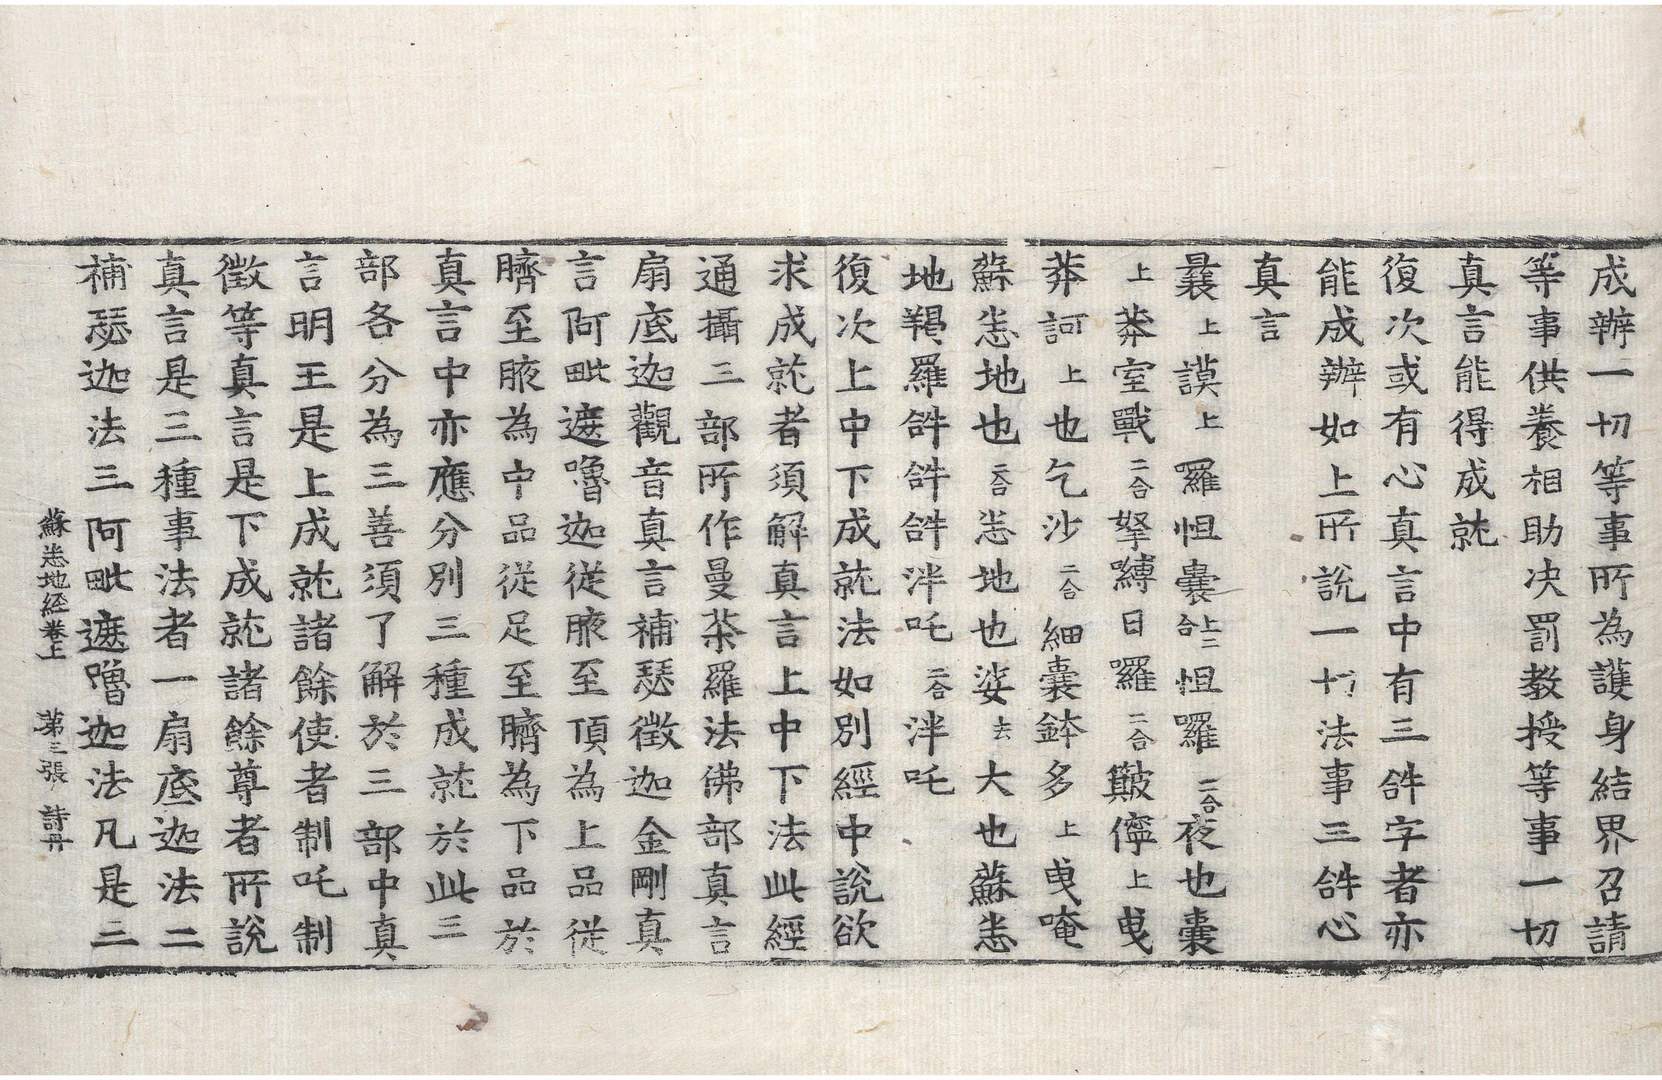 成辦一切等事所為護身結界召請
等事供養相助决罰教授等事一切
真言能得成就
復次或有心真言中有三𤙖字者亦
能成辦如上所說一切法事三𤙖心
真言
曩上謨上羅怛曩上二合怛囉二合夜也囊
上莽室戰二合拏嚩日囉二合簸儜上曳
莽訶上也乞沙二合細曩鉢多上曳唵
蘇悉地也二合悉地也娑去大也蘇悉
地羯羅𤙖𤙖𤙖泮吒二合泮吒
復次上中下成就法如別經中說欲
求成就者須解真言上中下法此經
通攝三部所作曼荼羅法佛部真言
扇底迦觀音真言補瑟徵迦金剛真
言阿毗遮嚕迦從腋至頂為上品從
臍至腋為中品從足至臍為下品於
真言中亦應分別三種成就於此三
部各分為三善須了解於三部中真
言明王是上成就諸餘使者制吒制
徵等真言是下成就諸餘尊者所說
真言是三種事法者一扇底迦法二
補瑟迦法三阿毗遮嚕迦法凡是三
蘇悉地経卷上 第三張 詩冊